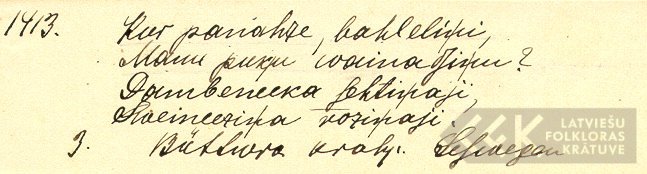 1413. Kur panahze, bahleliņi,
Manu puķu wainadziņu?
Dambenecka sehtiņaji,
Sweineeziņa roziņaji.
3. Büttnera krahj.
LATVIEŠU
FOLKLORAS
KRĀTUVE